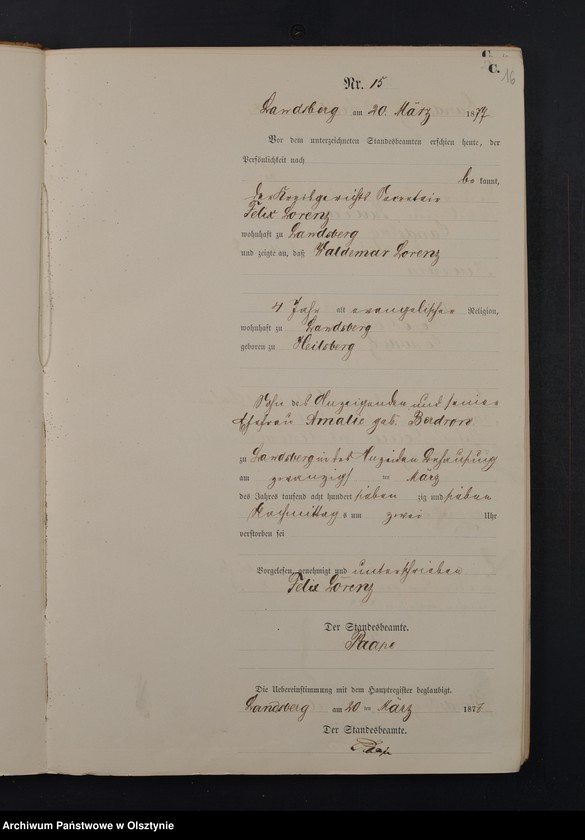 C.
C.
16
Nr. 15
Landsberg am 20 März 1877
Vor dem unterzeichneten Standesbeamten erschien heute, der
Persönlichkeit nach
be kannt,
der Kreisgerichts Secretair
Felix Lorenz
wohnhaft zu Landsberg
und zeigte an, daß Waldemar Lorenz
4 Jahr alt evangelischer Religion,
wohnhaft zu Landsberg
geboren zu Heilsberg
Sohn des Anzeigenden und seiner
Ehefrau Amalie geb. Berdrow
zu Landsberg in des Anzeigenden Behausung
am zwanzigsten März
des Jahres tausend acht hundert sieben zig und sieben
Nachmittags um zwei Uhr
verstorben sei
Vorgelesen, genehmigt und unterschrieben
Felix Lorenz
Der Standesbeamte.
Die Uebereinstimmung mit dem Hauptregister beglaubigt.
Landsberg am 20 ten März 1877
Der Standesbeamte.
Archiwum Państwowe w Olsztynie